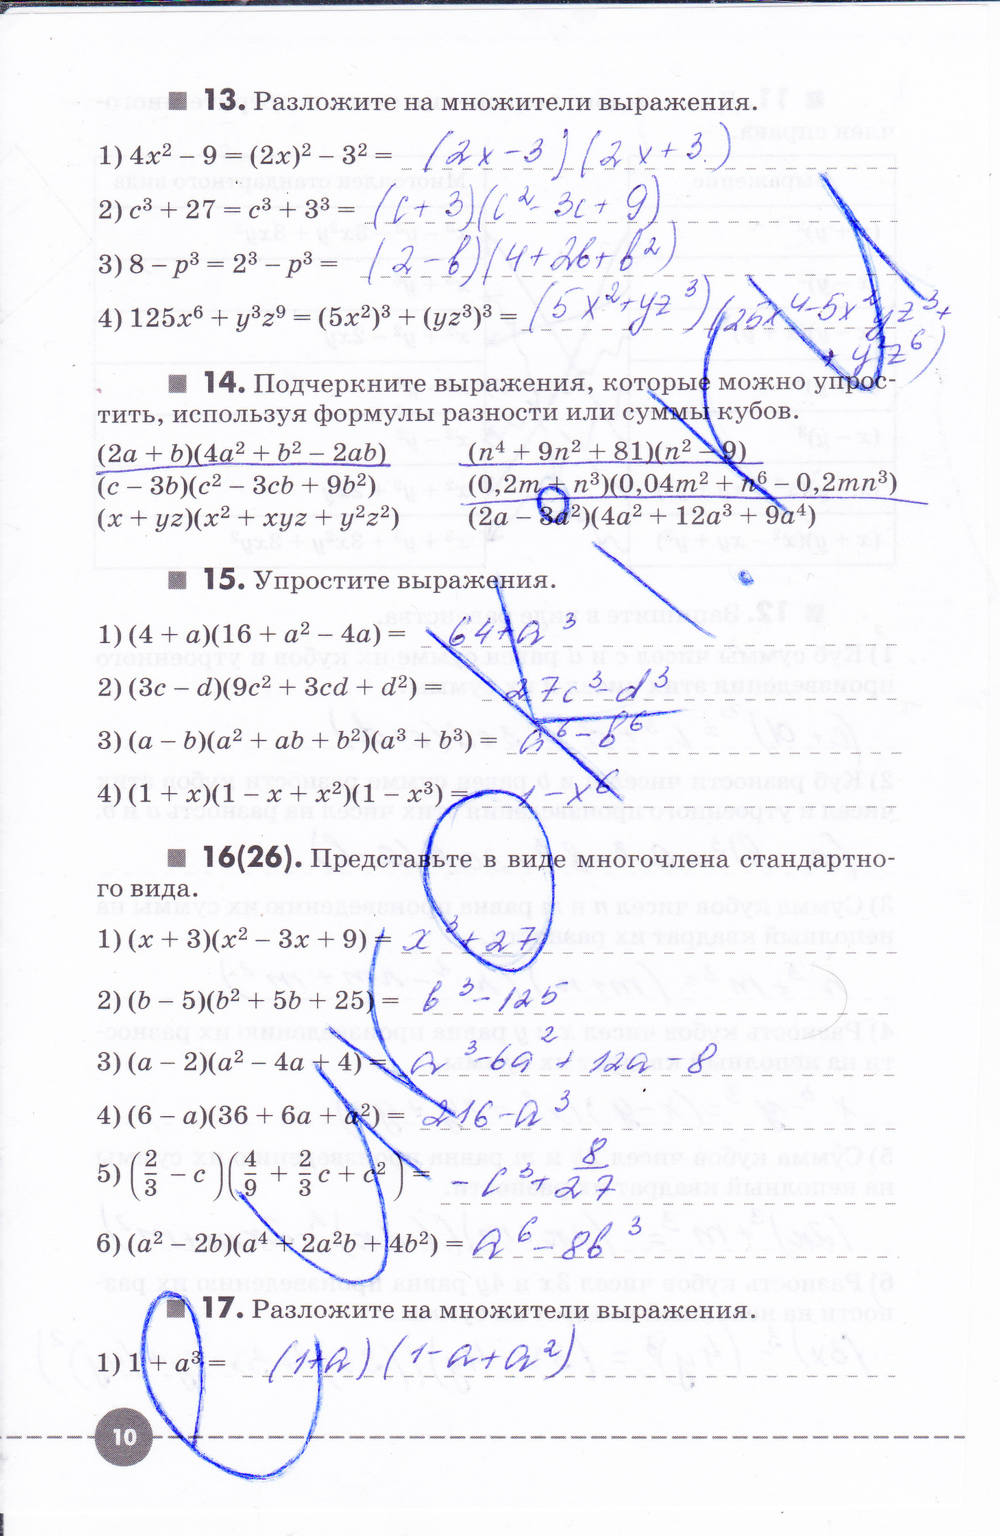 13. Разложите на множители выражения.
1) 4x² – 9 = (2x)² – 3² = (2x-3)(2x+3)
2) c³ + 27 = c³ + 3³ = (c+3)(c²-3c+9)
3) 8 – p³ = 2³ – p³ = (2-b)(4+2b+b²)
4) 125x⁶ + y³z⁹ = (5x²)³ + (yz³)³ = (5x²+yz³)(25x⁴-5x²yz³+
+ y²z⁶)
14. Подчеркните выражения, которые можно упрос-
тить, используя формулы разности или суммы кубов.
(2a + b)(4a² + b² – 2ab) (n⁴ + 9n² + 81)(n² – 9)
(c – 3b)(c² – 3cb + 9b²) (0,2m + n³)(0,04m² + n⁶ – 0,2mn³)
(x + yz)(x² + xyz + y²z²) (2a – 3a²)(4a² + 12a³ + 9a⁴)
15. Упростите выражения.
1) (4 + a)(16 + a² – 4a) = 64+a³
2) (3c – d)(9c² + 3cd + d²) = 27c³-d³
3) (a – b)(a² + ab + b²)(a³ + b³) = a⁶-b⁶
4) (1 + x)(1 – x + x²)(1 – x³) = 1-x⁶
16(26). Представьте в виде многочлена стандартно-
го вида.
1) (x + 3)(x² – 3x + 9) = x³+27
2) (b – 5)(b² + 5b + 25) = b³-125
3) (a – 2)(a² – 4a + 4) = a³-6a²+12a-8
4) (6 – a)(36 + 6a + a²) = 216-a³
5) (2/3 – c)(4/9 + 2/3 c + c²) = -c³+8/27
6) (a² – 2b)(a⁴ + 2a²b + 4b²) = a⁶-8b³
17. Разложите на множители выражения.
1) 1 + a³ = (1+a)(1-a+a²)
10